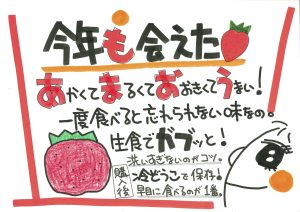 今年も会えた
あかくてまるくておおきくてうまい!
一度食べると忘れられない味なの。
生食でガブッと!
洗いすぎないのがコツ。
購入後
冷ぞうこで保存!
早目に食べるのが1番。